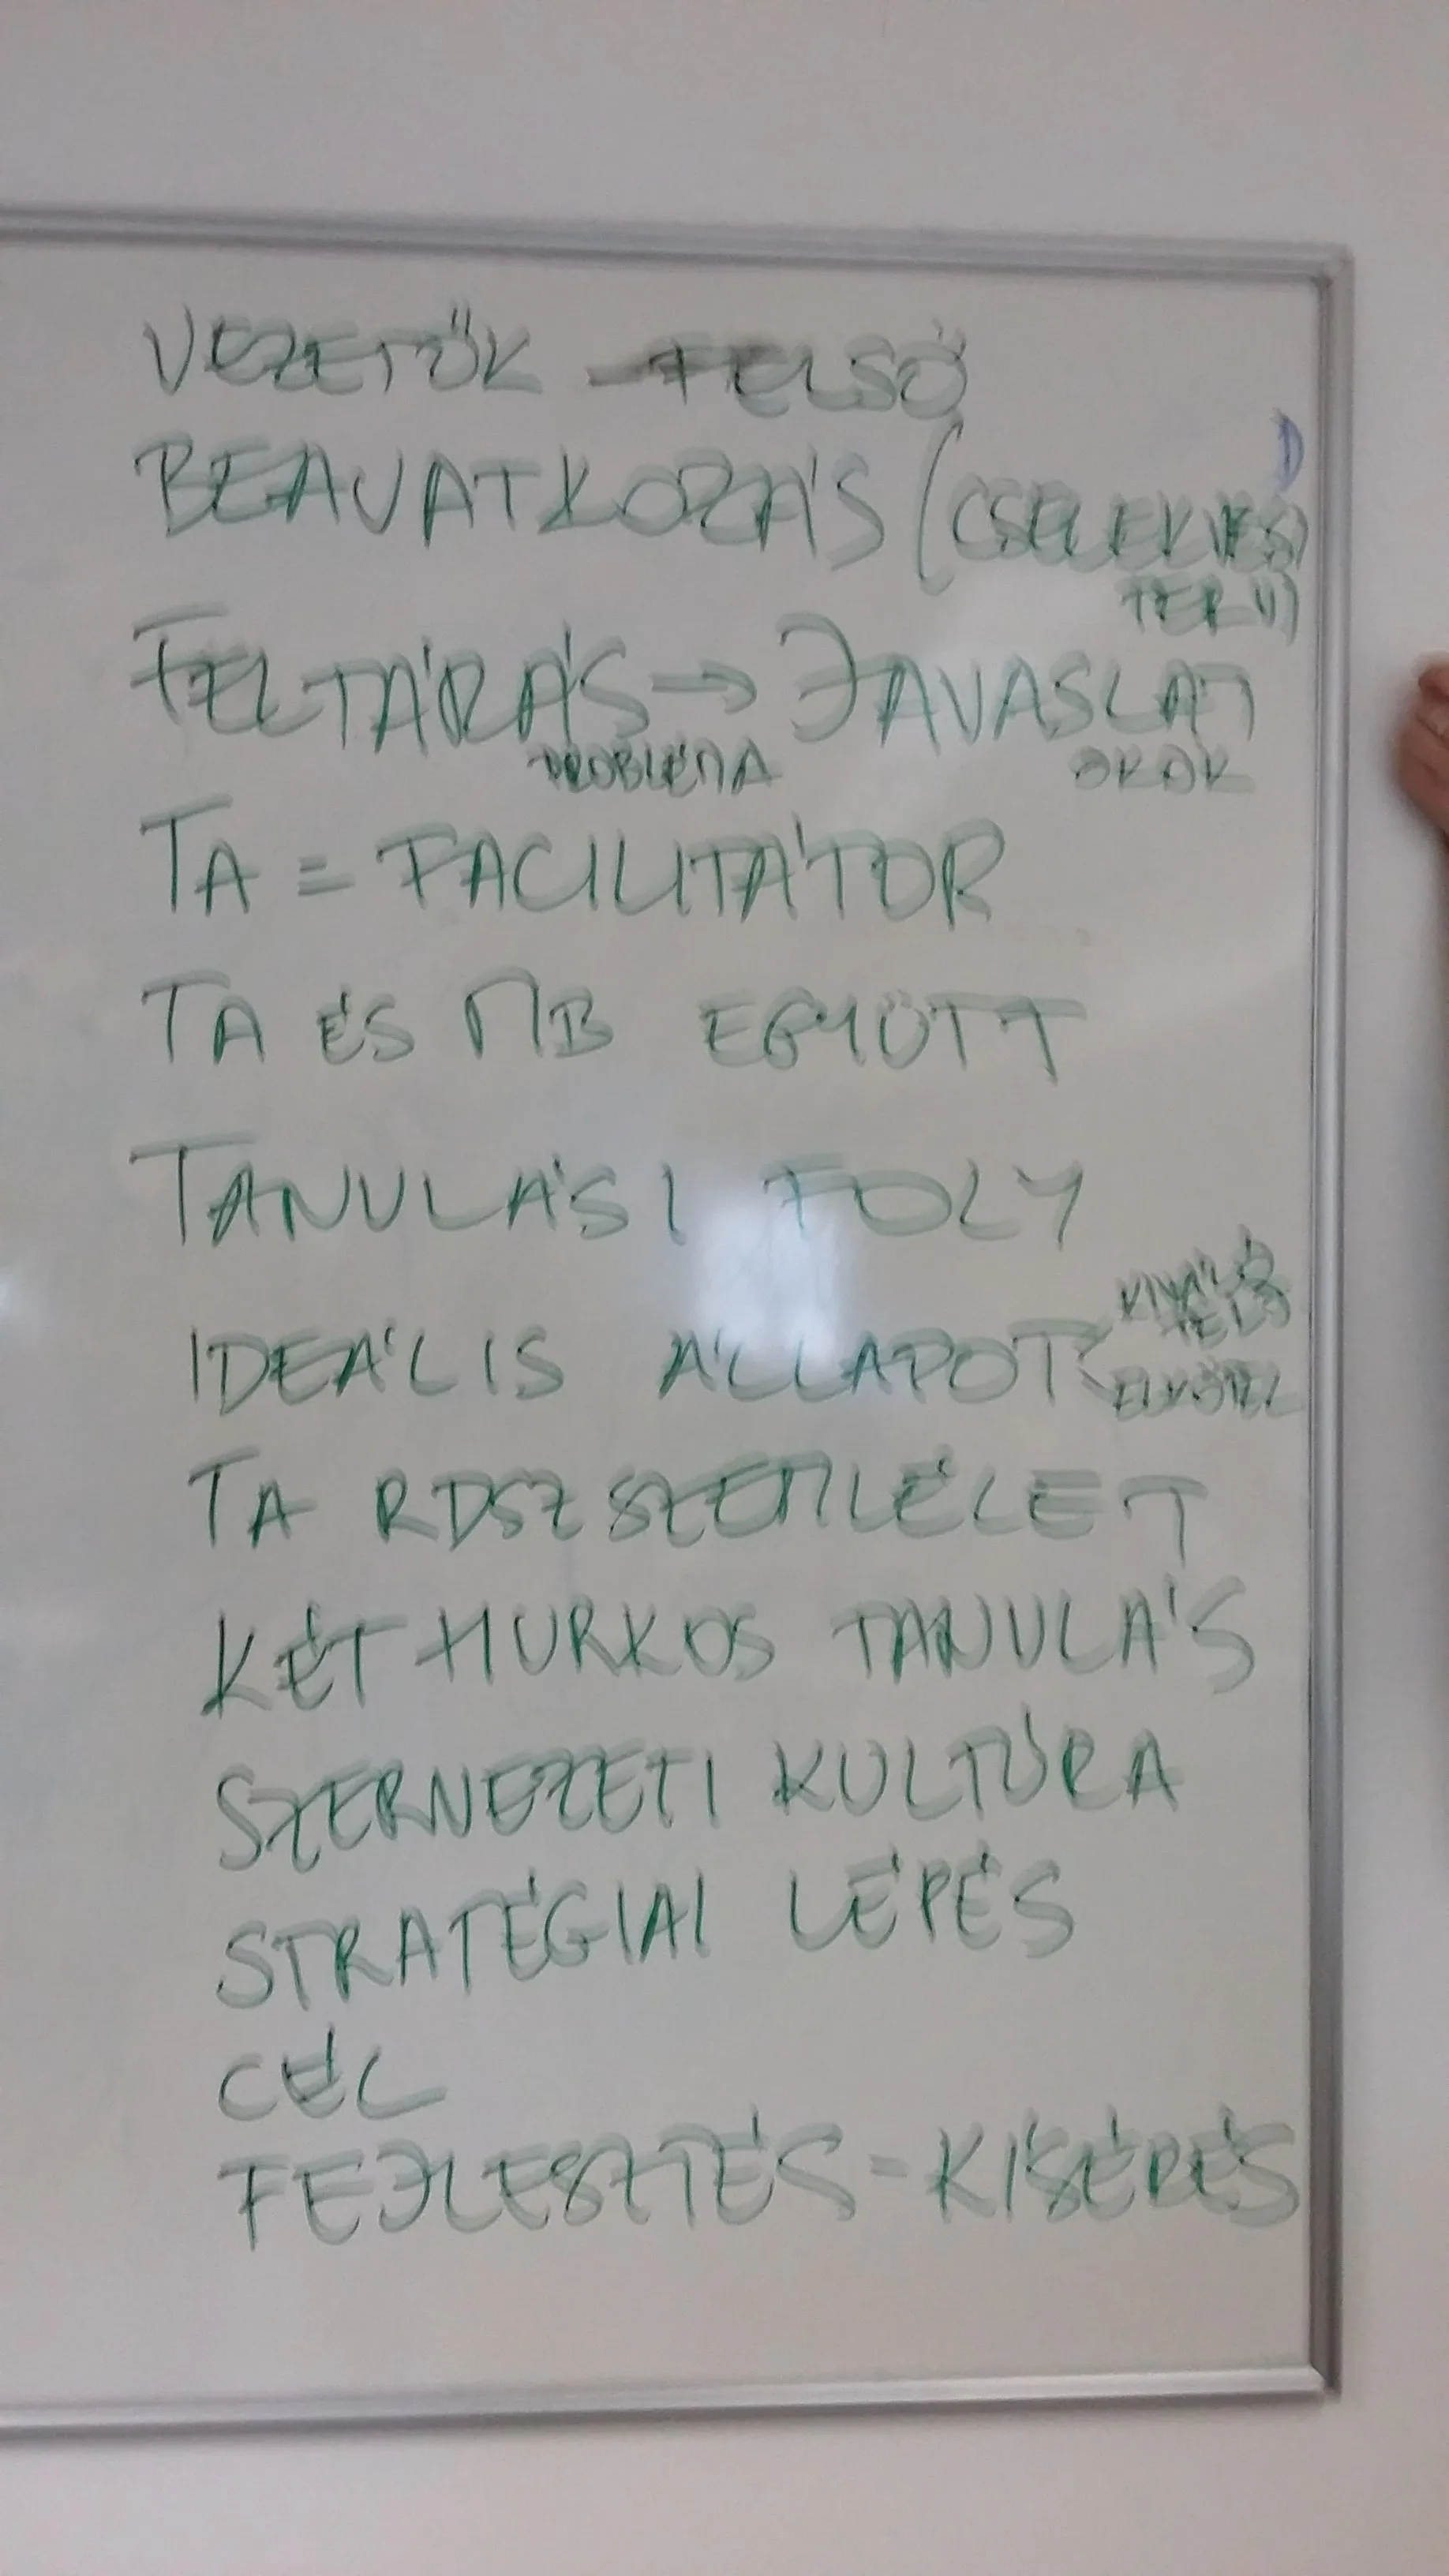 VEZETŐK - FELSŐ
BEAVATKOZÁS (CSELEKVÉSI
FELTÁRÁS → JAVASLAT
PROBLÉMA OKOK
TA = FACILITÁTOR
TA ÉS MB EGYÜTT
TANULÁSI FOLY
IDEÁLIS ÁLLAPOT
TA RDSZSZEMLÉLET
KÉTHURKOS TANULÁS
SZERVEZETI KULTÚRA
STRATÉGIAI LÉPÉS
CÉL
FEJLESZTÉS - KÍSÉRÉS